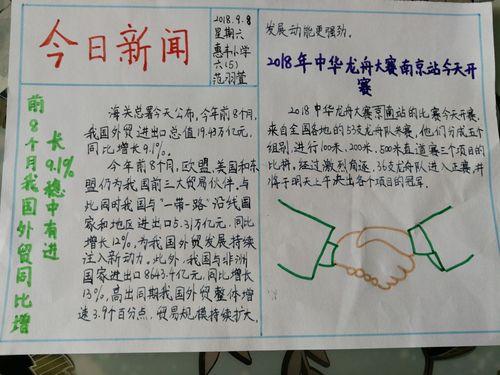 今日新闻
2018.9.8
星期六
惠丰小学
六(5)
范羽萱
前8个月我国外贸同比增
长9.1%稳中有进
海关总署今天公布,今年前8个月,
我国外贸进出口总值19.43万亿元,
同比增长9.1%。
今年前8个月,欧盟、美国和东
盟仍为我国前三大贸易伙伴,与
此同时我国与“一带一路”沿线国
家和地区进出口5.31万亿元,同比
增长12%,为我国外贸发展持续
注入新动力。此外,我国与非洲
国家进出口8643.4亿元,同比增长
13%,高出同期我国外贸整体增
速3.9个百分点,贸易规模持续扩大,
发展动能更强劲。
2018年中华龙舟大赛南京站今天开
赛
2018中华龙舟大赛京南站的比赛今天开赛,
来自全国各地的63支龙舟队来赛,他们分成五个
组别进行100米、200米、500米直道赛三个项目的
比拼,经过激烈角逐,36支龙舟队进入正赛,并
将于明天上午决出各个项目的冠军。